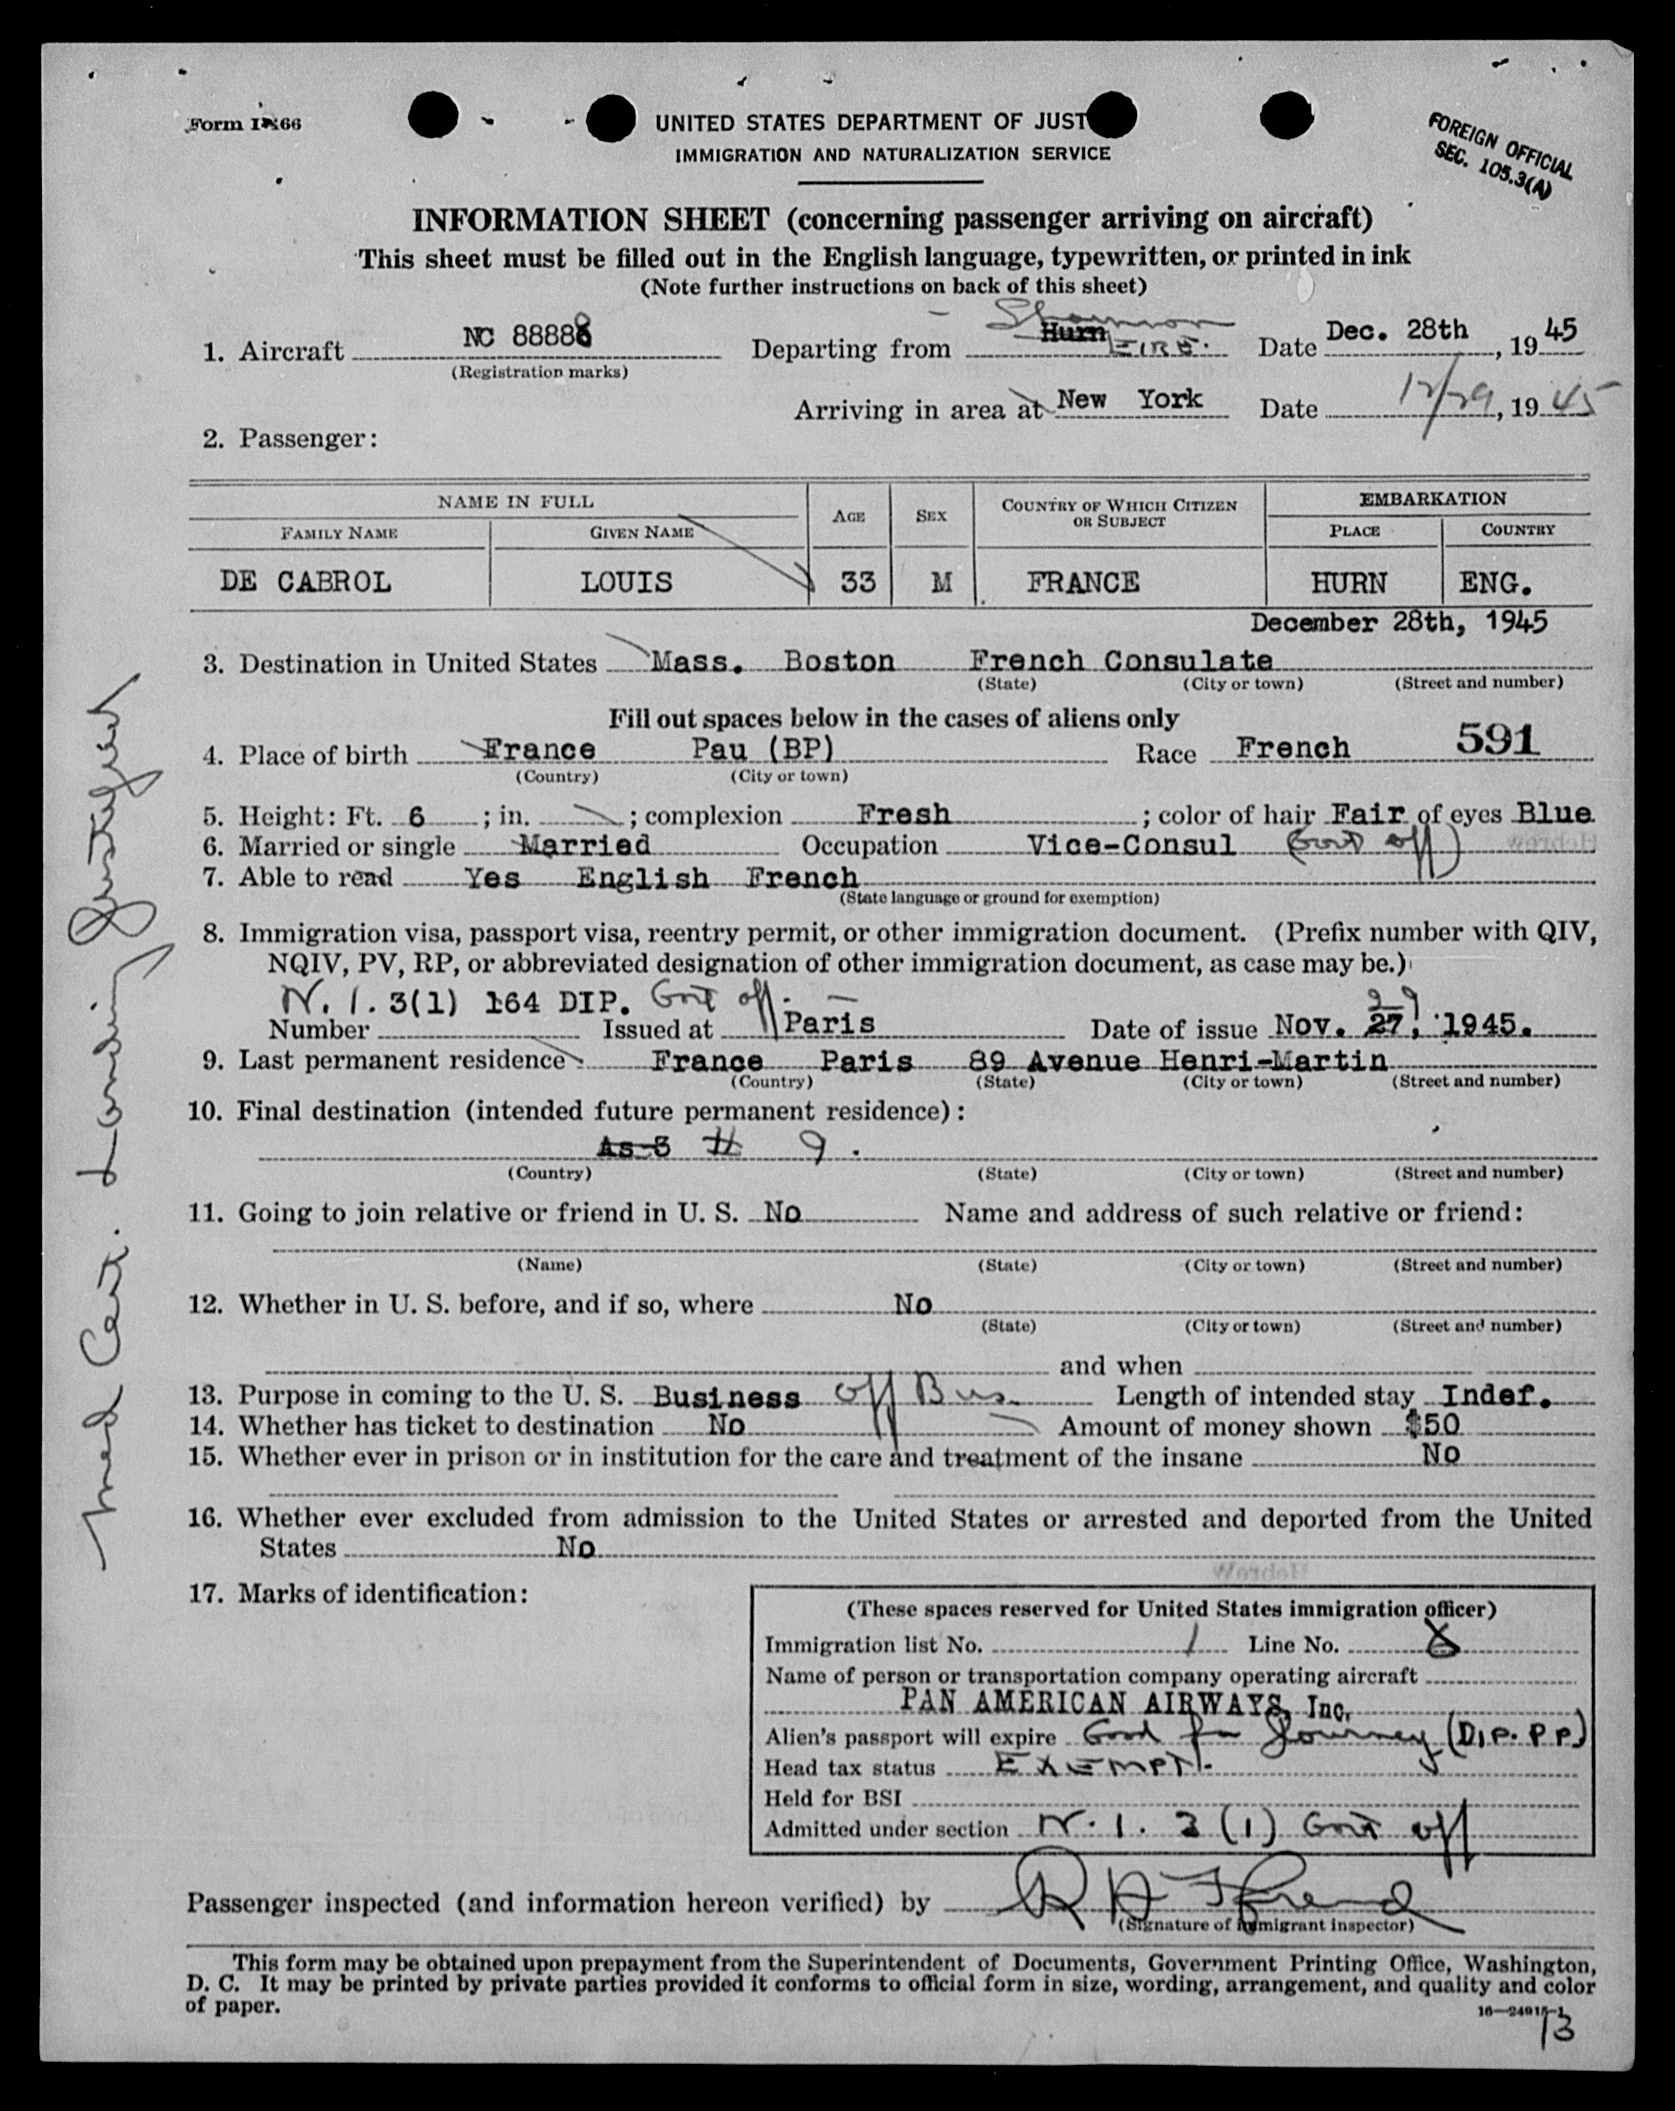 Form I-466
UNITED STATES DEPARTMENT OF JUST
IMMIGRATION AND NATURALIZATION SERVICE
FOREIGN OFFICIAL
SEC. 105.3(A)
INFORMATION SHEET (concerning passenger arriving on aircraft)
This sheet must be filled out in the English language, typewritten, or printed in ink
(Note further instructions on back of this sheet)
Shannon
1. Aircraft NC 88888 Departing from Hurn EIRE. Date Dec. 28th, 1945
(Registration marks)
Arriving in area at New York Date 12/29, 1945
2. Passenger:
NAME IN FULL AGE SEX COUNTRY OF WHICH CITIZEN OR SUBJECT EMBARKATION
FAMILY NAME GIVEN NAME PLACE COUNTRY
DE CABROL LOUIS 33 M FRANCE HURN ENG.
December 28th, 1945
3. Destination in United States Mass. Boston French Consulate
(State) (City or town) (Street and number)
Fill out spaces below in the cases of aliens only
4. Place of birth France Pau (BP) Race French 591
(Country) (City or town)
5. Height: Ft. 6 ; in. ; complexion Fresh ; color of hair Fair of eyes Blue
6. Married or single Married Occupation Vice-Consul (Govt off) Hebrew
7. Able to read Yes English French
(State language or ground for exemption)
8. Immigration visa, passport visa, reentry permit, or other immigration document. (Prefix number with QIV,
NQIV, PV, RP, or abbreviated designation of other immigration document, as case may be.)
N. 1. 3(1) 164 DIP. Govt off. 29
Number Issued at Paris Date of issue Nov. 27, 1945.
9. Last permanent residence France Paris 89 Avenue Henri-Martin
(Country) (State) (City or town) (Street and number)
10. Final destination (intended future permanent residence):
As 3 # 9.
(Country) (State) (City or town) (Street and number)
11. Going to join relative or friend in U. S. No Name and address of such relative or friend:
(Name) (State) (City or town) (Street and number)
12. Whether in U. S. before, and if so, where No
(State) (City or town) (Street and number)
and when
13. Purpose in coming to the U. S. Business off Bus. Length of intended stay Indef.
14. Whether has ticket to destination No Amount of money shown $50
15. Whether ever in prison or in institution for the care and treatment of the insane No
16. Whether ever excluded from admission to the United States or arrested and deported from the United
States No
Hebrew
17. Marks of identification:
(These spaces reserved for United States immigration officer)
Immigration list No. 1 Line No. 6
Name of person or transportation company operating aircraft
PAN AMERICAN AIRWAYS, Inc.
Alien's passport will expire Good for Journey (Dip. P.P.)
Head tax status EXEMPT.
Held for BSI
Admitted under section N. 1. 3 (1) Govt off
Passenger inspected (and information hereon verified) by
(Signature of immigrant inspector)
This form may be obtained upon prepayment from the Superintendent of Documents, Government Printing Office, Washington,
D. C. It may be printed by private parties provided it conforms to official form in size, wording, arrangement, and quality and color
of paper.
16—24915-1
13
Med Cert. Landing